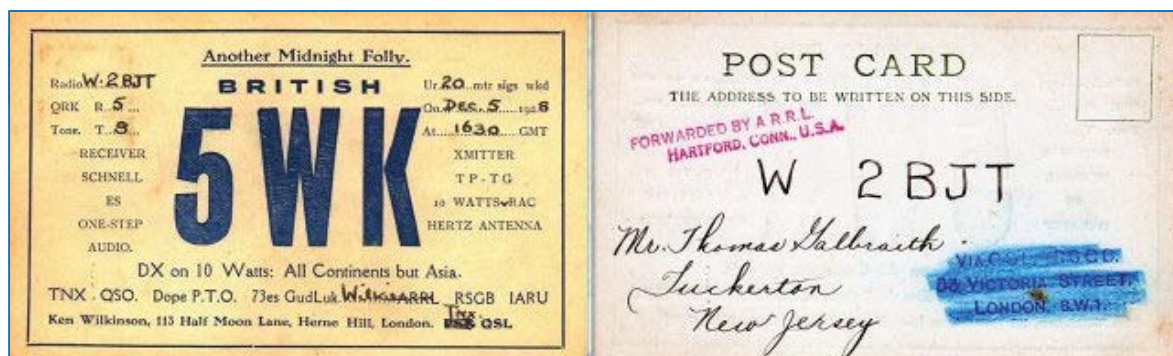 Another Midnight Folly.
BRITISH
5WK
Radio W-2BJT
QRK R 5
Tone. T 8
RECEIVER
SCHNELL
ES
ONE-STEP
AUDIO.
Ur 20 mtr sigs wkd
On Dec. 5 1928
At 1630 GMT
XMITTER
TP-TG
10 WATTS RAC
HERTZ ANTENNA
DX on 10 Watts: All Continents but Asia.
TNX QSO. Dope P.T.O. 73es GudLuk. ARRL RSGB IARU
Ken Wilkinson, 113 Half Moon Lane, Herne Hill, London. Tnx. QSL
POST CARD
THE ADDRESS TO BE WRITTEN ON THIS SIDE.
FORWARDED BY A.R.R.L.
HARTFORD, CONN., U.S.A.
W 2BJT
Mr. Thomas Galbraith.
Tuckerton
New Jersey
VICTORIA STREET.
LONDON. S.W.1.